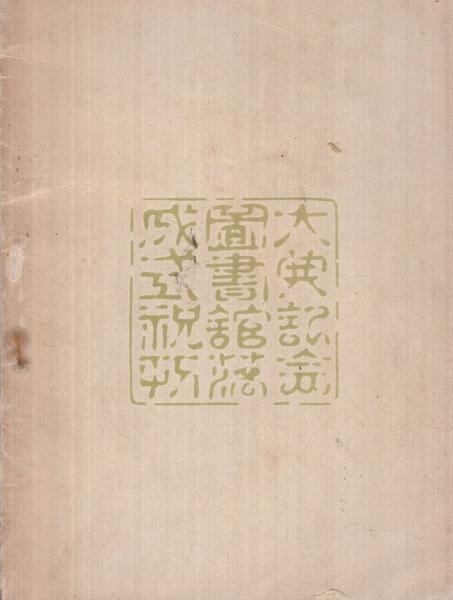 大典記念
圖書館落
成式祝刊